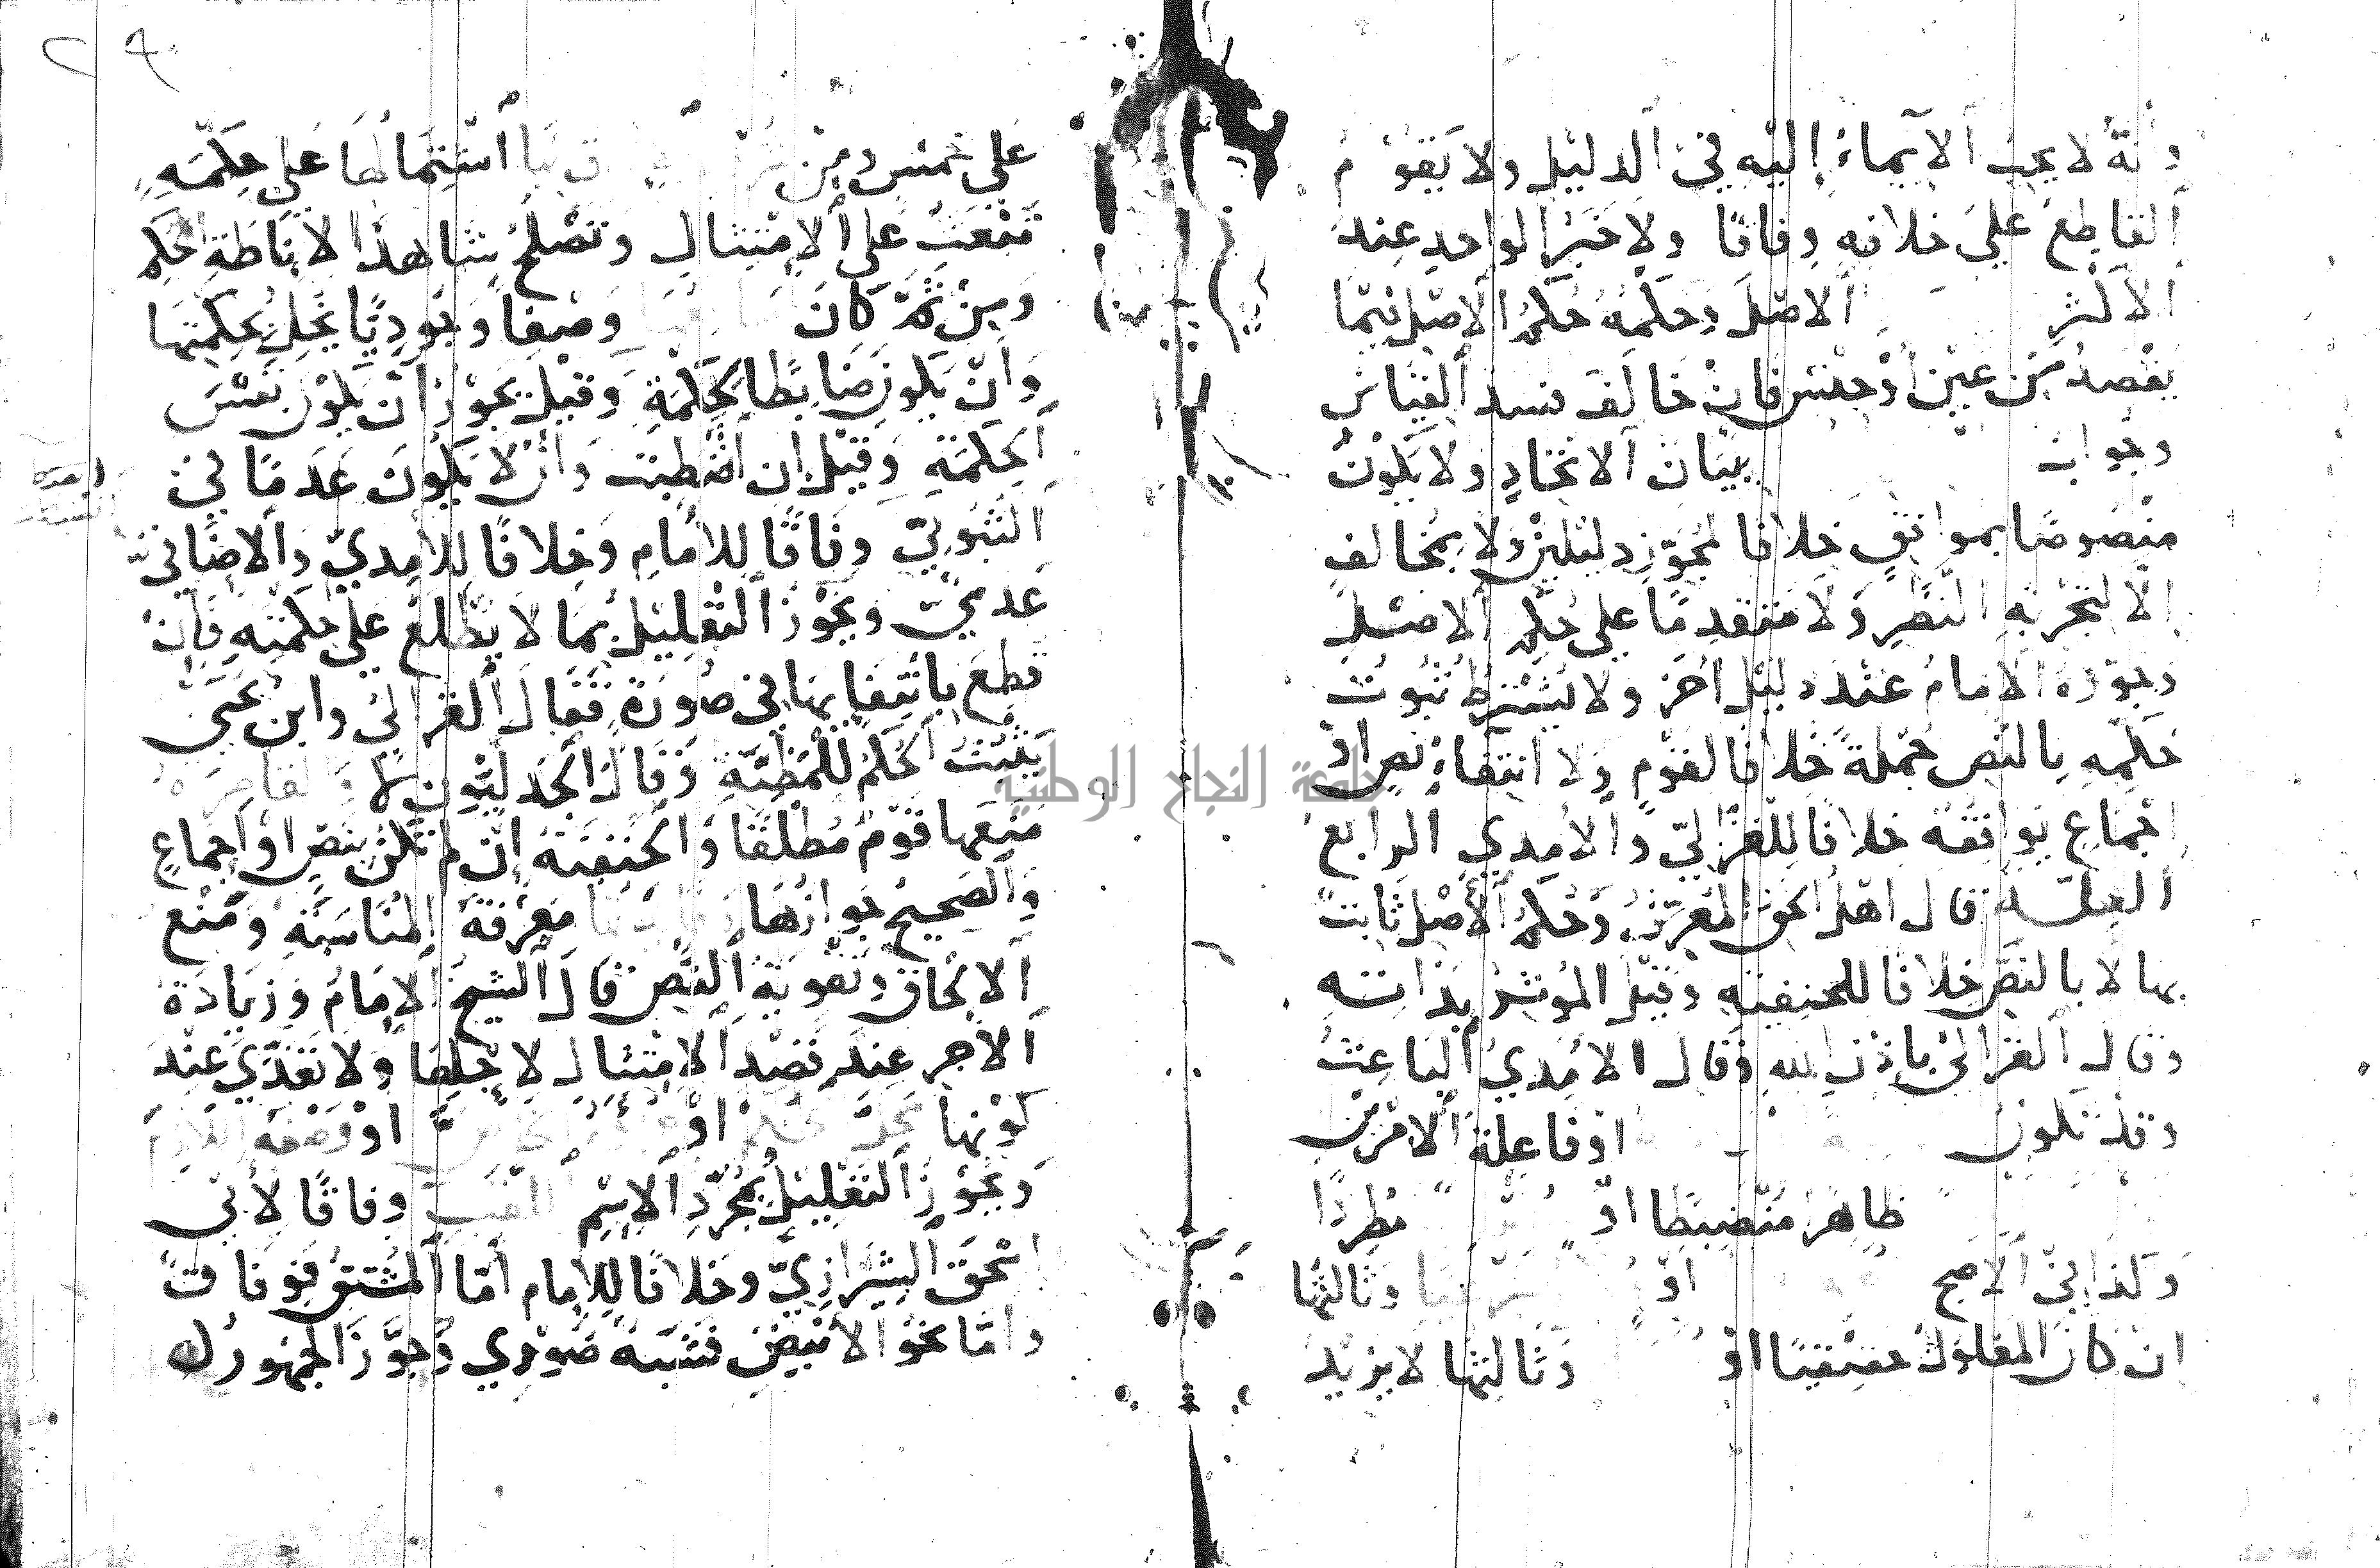 وأنه لا يجب الايماء إليه في الدليل ولا يقوم
القاطع على خلافه وفاقا ولا خبر الواحد عند
الأكثر الأصل وحكمه حكم الأصل فيما
يقصد من عين أو جنس فإن خالف فسد القياس
وجواب ببيان الاتحاد ولا يكون
منصوصا بموافق خلافا لمجوز دليلين ولا بمخالف
إلا لتجربة النظر ولا متقدما على حكم الأصل
وجوزه الإمام عند دليل آخر ولا يشترط ثبوت
حكمه بالنص جملة خلافا لقوم ولا انتفاء نص او
إجماع يوافقه خلافا للغزالي والآمدي الرابع
العلة قال أهل الحق المعرف وحكم الأصل ثابت
بها لا بالنص خلافا للحنفية وقيل المؤثر بذاته
وقال الغزالي بإذن الله وقال الآمدي الباعث
وقد تكون او فاعلة الأمرين
ظاهرا منضبطا او مطردا
وكذا في الأصح او وثالثها
ان كان المعلول حقيقيا او وثالثها لا يزيد
٢٩
على خمس ومن اشتمالها على حكمة
تبعث على الامتثال وتصلح شاهدا لإناطة الحكم
ومن ثم كان وصفا وجوديا يخل بحكمتها
وان يكون ضابطا لحكمة وقيل يجوز أن يكون نفس
الحكمة وقيل إن انضبطت وأن لا يكون عدما في
الثبوتي وفاقا للإمام وخلافا للآمدي والإضافي
عدمي ويجوز التعليل بما لا يطلع على حكمته فإن
قطع بانتفائها في صورة فقال الغزالي وابن يحيى
يثبت الحكم للمظنة وقال الجدليون لا والقاصرة
منعها قوم مطلقا والحنفية إن لم تكن بنص او إجماع
والصحيح جوازها معرفة المناسبة ومنع
الإلحاق وتقوية النص قال الشيخ الإمام وزيادة
الأجر عند قصد الامتثال لأجلها ولا تعدي عند
كونها محل او او وصفه اللازم
ويجوز التعليل بمجرد الاسم اللقب وفاقا لأبي
اسحق الشيرازي وخلافا للإمام أما المشتق فوفاق
واما نحو الأبيض فشبه صوري وجوز الجمهور
جامعة النجاح الوطنية